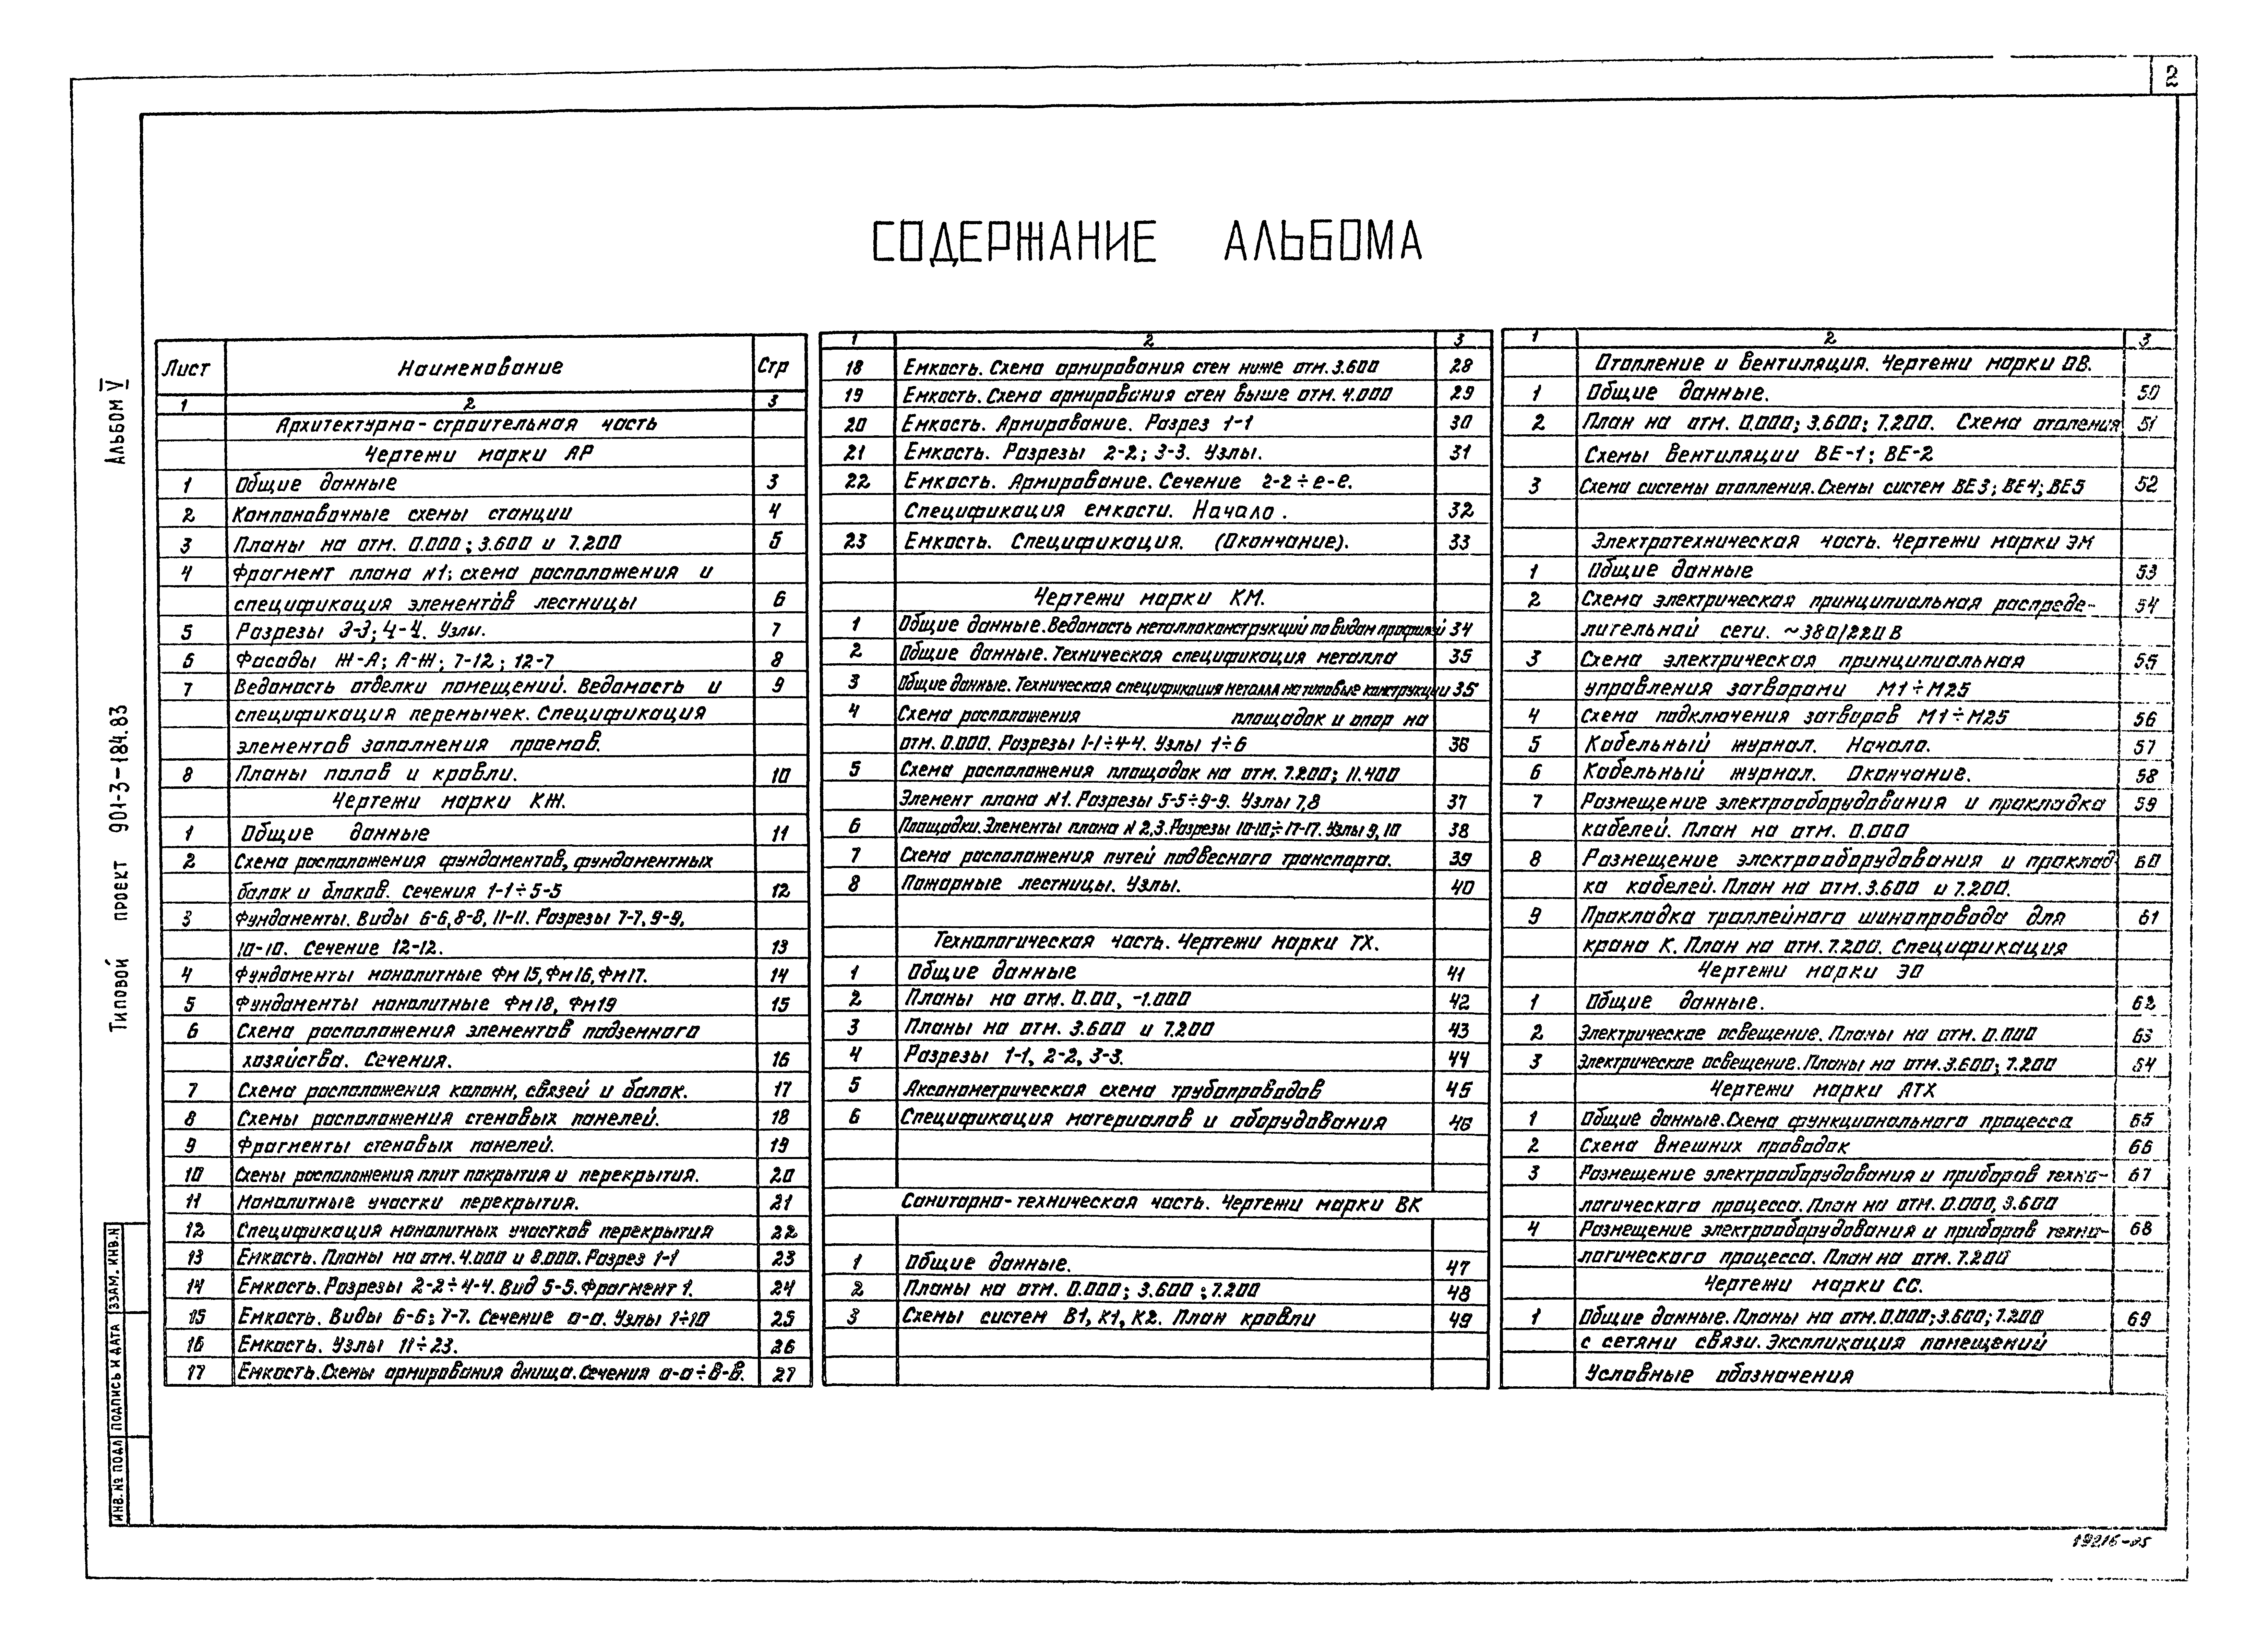 2
СОДЕРЖАНИЕ АЛЬБОМА
Альбом V
Типовой проект 901-3-184.83
Лист Наименование Стр
1 2 3
Архитектурно-строительная часть
Чертежи марки АР
1 Общие данные 3
2 Компоновочные схемы станции 4
3 Планы на отм. 0.000; 3.600 и 7.200 5
4 Фрагмент плана №1; схема расположения и
спецификация элементов лестницы 6
5 Разрезы 3-3; 4-4. Узлы. 7
6 Фасады Ж-А; А-Ж; 7-12; 12-7 8
7 Ведомость отделки помещений. Ведомость и 9
спецификация перемычек. Спецификация
элементов заполнения проемов.
8 Планы полов и кровли. 10
Чертежи марки КЖ.
1 Общие данные 11
2 Схема расположения фундаментов, фундаментных
балок и блоков. Сечения 1-1÷5-5 12
3 Фундаменты. Виды 6-6, 8-8, 11-11. Разрезы 7-7, 9-9,
10-10. Сечение 12-12. 13
4 Фундаменты монолитные Фм15, Фм16, Фм17. 14
5 Фундаменты монолитные Фм18, Фм19 15
6 Схема расположения элементов подземного
хозяйства. Сечения. 16
7 Схема расположения колонн, связей и балок. 17
8 Схемы расположения стеновых панелей. 18
9 Фрагменты стеновых панелей. 19
10 Схемы расположения плит покрытия и перекрытия. 20
11 Монолитные участки перекрытия. 21
12 Спецификация монолитных участков перекрытия 22
13 Емкость. Планы на отм. 4.000 и 8.000. Разрез 1-1 23
14 Емкость. Разрезы 2-2÷4-4. Вид 5-5. Фрагмент 1. 24
15 Емкость. Виды 6-6; 7-7. Сечение а-а. Узлы 1÷10 25
16 Емкость. Узлы 11÷23. 26
17 Емкость. Схемы армирования днища. Сечения а-а÷в-в. 27
1 2 3
18 Емкость. Схема армирования стен ниже отм. 3.600 28
19 Емкость. Схема армирования стен выше отм. 4.000 29
20 Емкость. Армирование. Разрез 1-1 30
21 Емкость. Разрезы 2-2; 3-3. Узлы. 31
22 Емкость. Армирование. Сечение г-г÷е-е.
Спецификация емкости. Начало. 32
23 Емкость. Спецификация. (Окончание). 33
Чертежи марки КМ.
1 Общие данные. Ведомость металлоконструкций по видам профилей 34
2 Общие данные. Техническая спецификация металла 35
3 Общие данные. Техническая спецификация металла на типовые конструкции 35
4 Схема расположения площадок и опор на
отм. 0.000. Разрезы 1-1÷4-4. Узлы 1÷6 36
5 Схема расположения площадок на отм. 7.200; 11.400
Элемент плана №1. Разрезы 5-5÷9-9. Узлы 7,8 37
6 Площадки. Элементы плана № 2,3. Разрезы 10-10÷17-17. Узлы 9,10 38
7 Схема расположения путей подвесного транспорта. 39
8 Пожарные лестницы. Узлы. 40
Технологическая часть. Чертежи марки ТХ.
1 Общие данные 41
2 Планы на отм. 0.00, -1.000 42
3 Планы на отм. 3.600 и 7.200 43
4 Разрезы 1-1, 2-2, 3-3. 44
5 Аксонометрическая схема трубопроводов 45
6 Спецификация материалов и оборудования 46
Санитарно-техническая часть. Чертежи марки ВК
1 Общие данные. 47
2 Планы на отм. 0.000; 3.600; 7.200 48
3 Схемы систем В1, К1, К2. План кровли 49
1 2 3
Отопление и вентиляция. Чертежи марки ОВ.
1 Общие данные. 50
2 План на отм. 0.000; 3.600; 7.200. Схема отопления 51
Схемы вентиляции ВЕ-1; ВЕ-2
3 Схема системы отопления. Схемы систем ВЕ3; ВЕ4; ВЕ5 52
Электротехническая часть. Чертежи марки ЭМ
1 Общие данные 53
2 Схема электрическая принципиальная распреде- 54
лительной сети. ~380/220В
3 Схема электрическая принципиальная 55
управления затворами М1÷М25
4 Схема подключения затворов М1÷М25 56
5 Кабельный журнал. Начало. 57
6 Кабельный журнал. Окончание. 58
7 Размещение электрооборудования и прокладка 59
кабелей. План на отм. 0.000
8 Размещение электрооборудования и проклад 60
ка кабелей. План на отм. 3.600 и 7.200.
9 Прокладка троллейного шинопровода для 61
крана К. План на отм. 7.200. Спецификация
Чертежи марки ЭО
1 Общие данные. 62
2 Электрическое освещение. Планы на отм. 0.000 63
3 Электрическое освещение. Планы на отм. 3.600; 7.200 64
Чертежи марки АТХ
1 Общие данные. Схема функционального процесса 65
2 Схема внешних проводок 66
3 Размещение электрооборудования и приборов техно- 67
логического процесса. План на отм. 0.000, 3.600
4 Размещение электрооборудования и приборов техно- 68
логического процесса. План на отм. 7.200
Чертежи марки СС.
1 Общие данные. Планы на отм. 0.000; 3.600; 7.200 69
с сетями связи. Экспликация помещений
Условные обозначения
ИНВ. № ПОДЛ ПОДПИСЬ И ДАТА ВЗАМ. ИНВ. N
19216-05